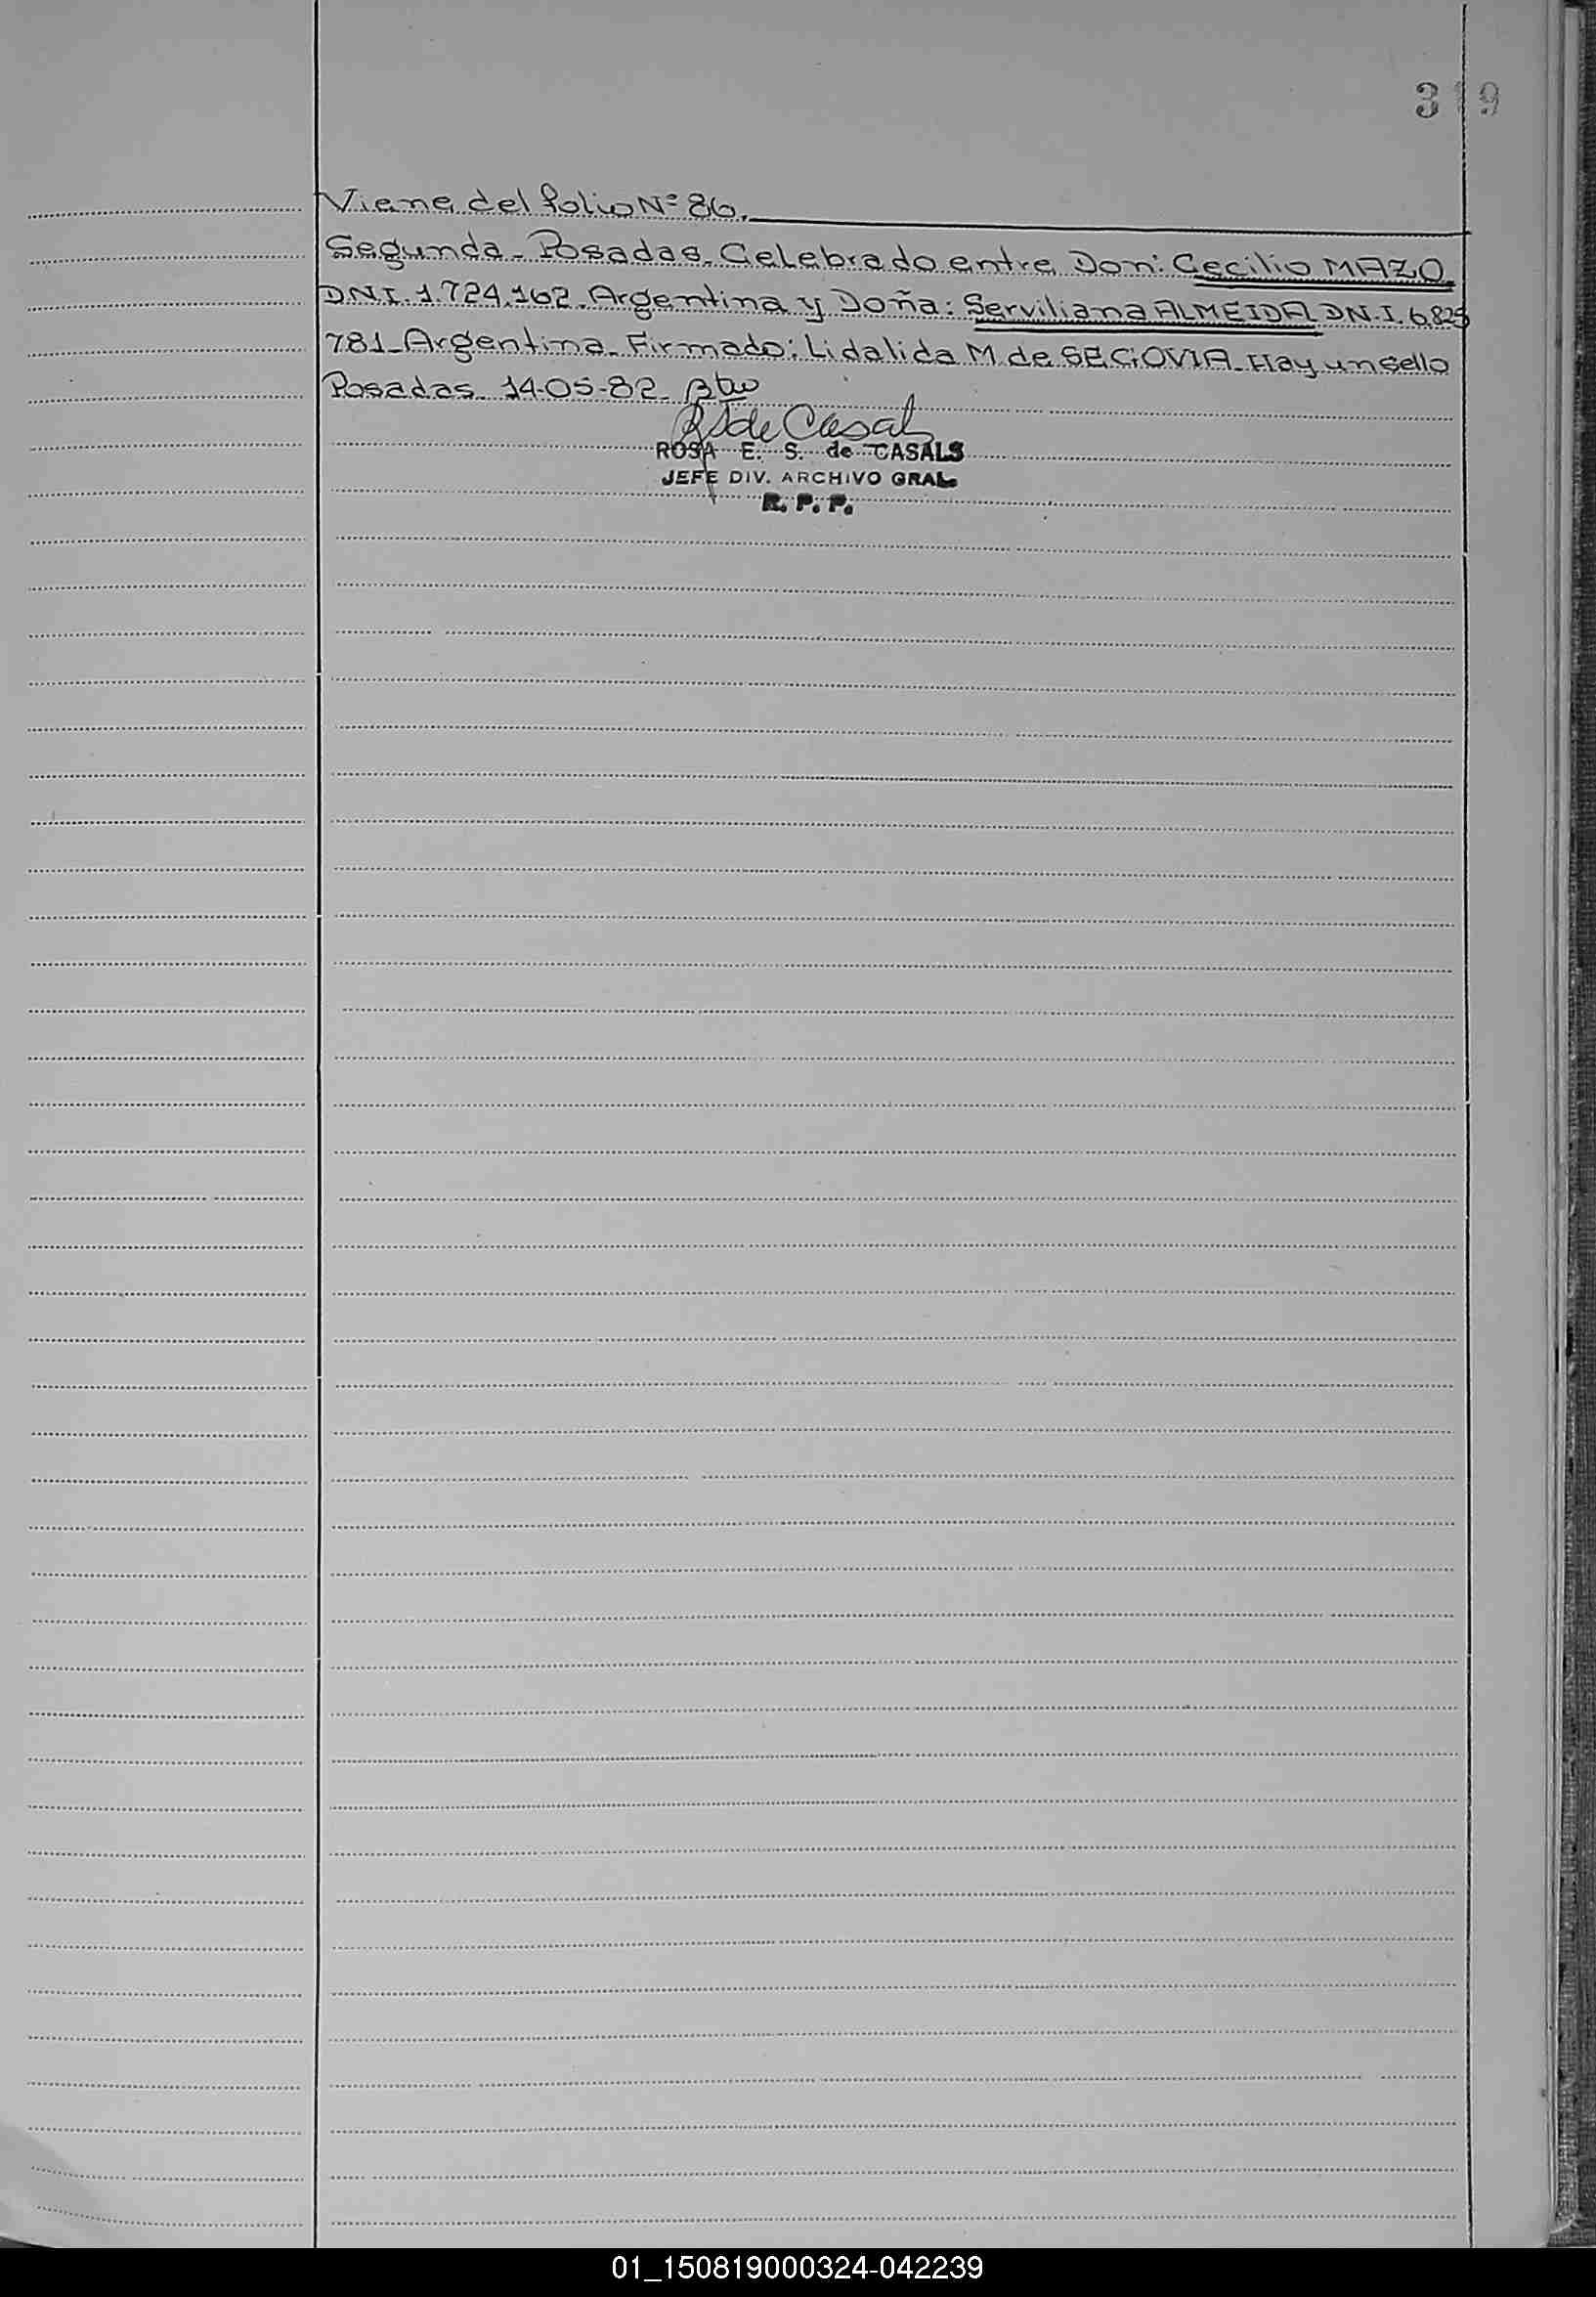 319
Viene del folio Nº 86.
Segunda - Posadas. Celebrado entre Don: Cecilio MAZO.
D.N.I. 1.724.162. Argentina y Doña: Serviliana ALMEIDA DN.I. 6.825
781 - Argentina. Firmado: Lidalida M de SEGOVIA. Hay un sello
Posadas. 14-05-82.
ROSA E. S. de CASALS
JEFE DIV. ARCHIVO GRAL.
R. P. P.
01_150819000324-042239